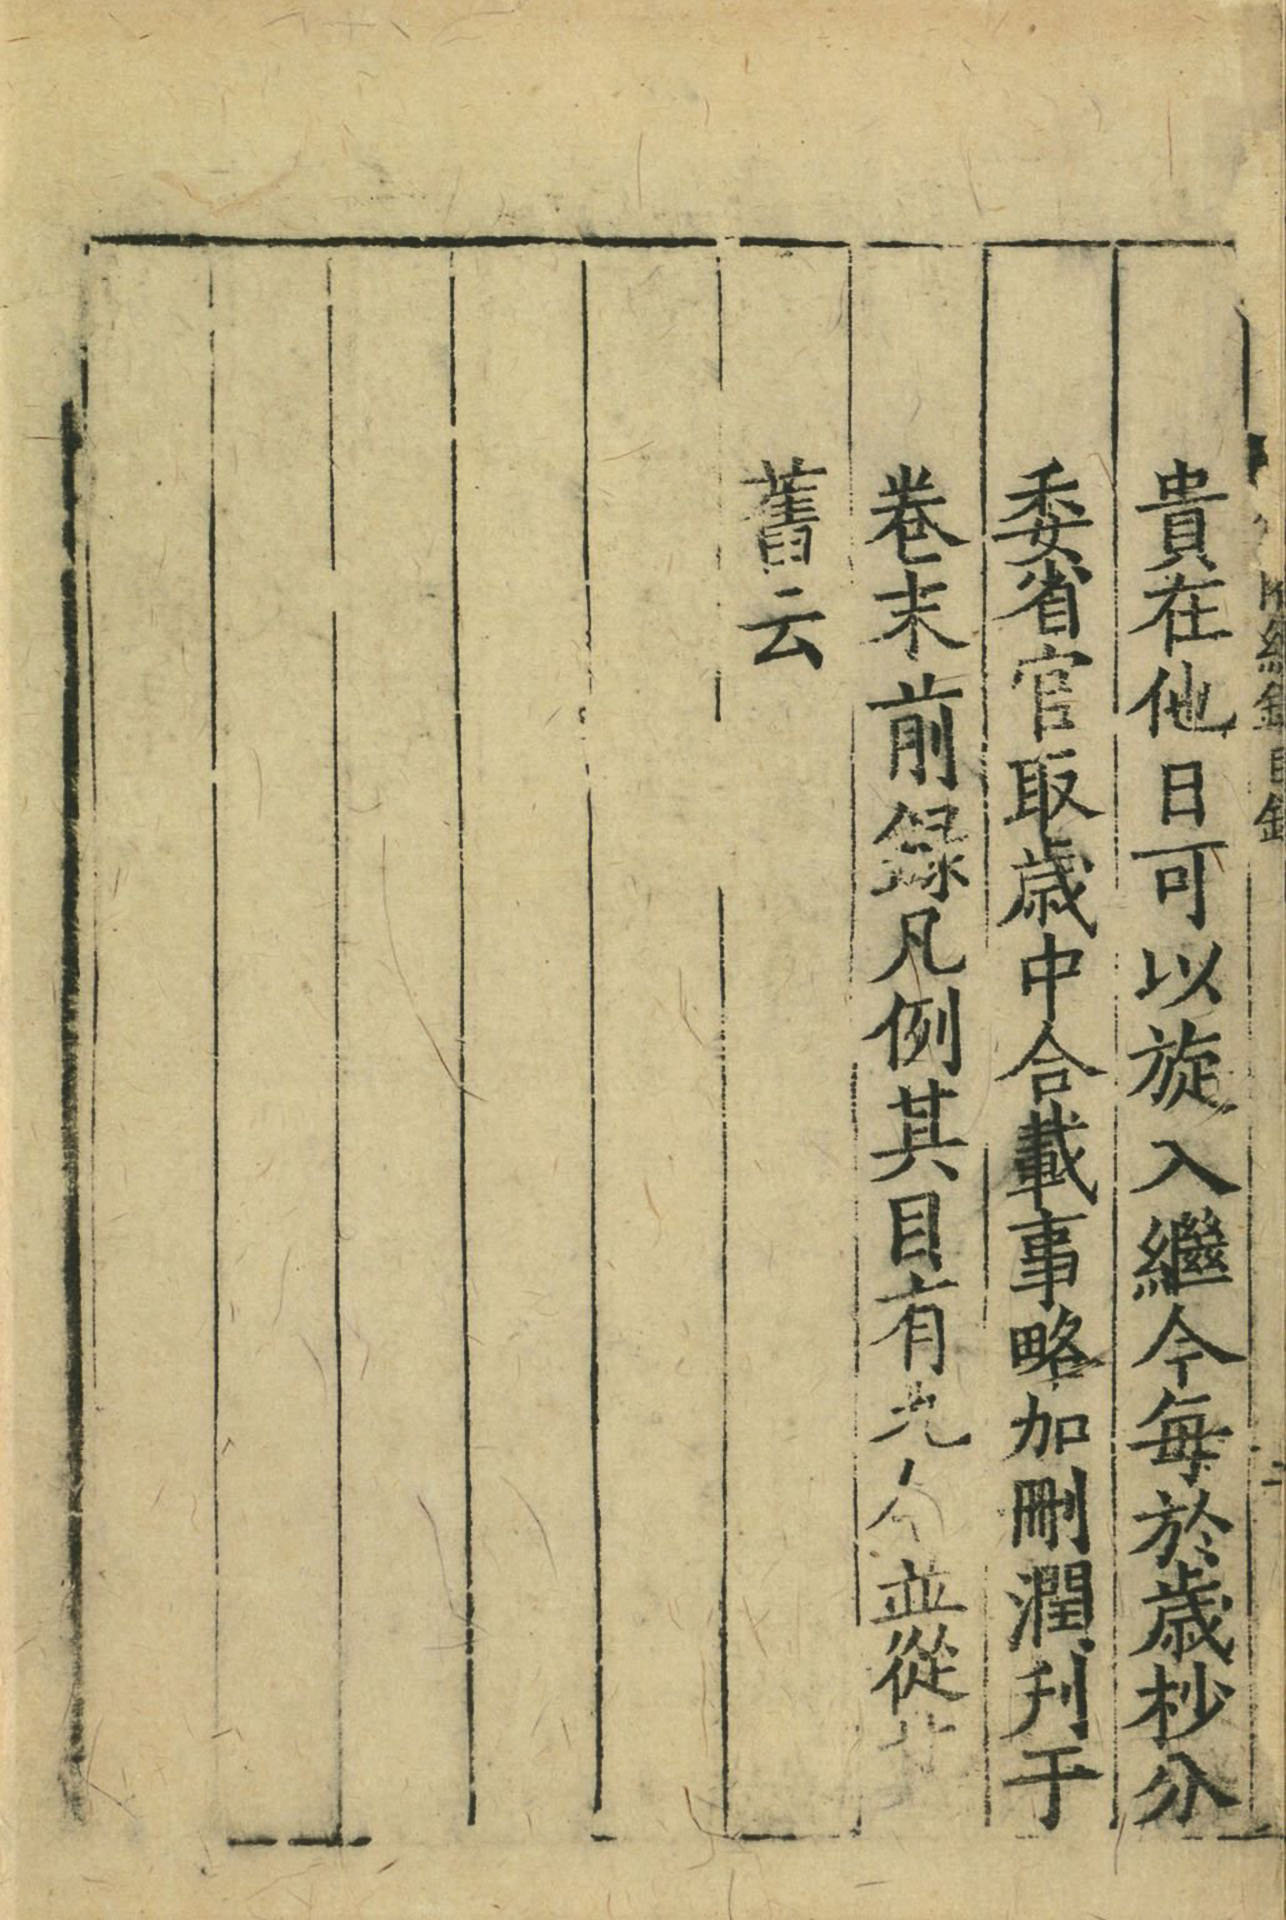 貴在他日可以旋入繼今每於歲杪分
委省官取歲中合載事略加刪潤刊于
卷末前錄凡例其目有九今並從
舊云
續錄目錄